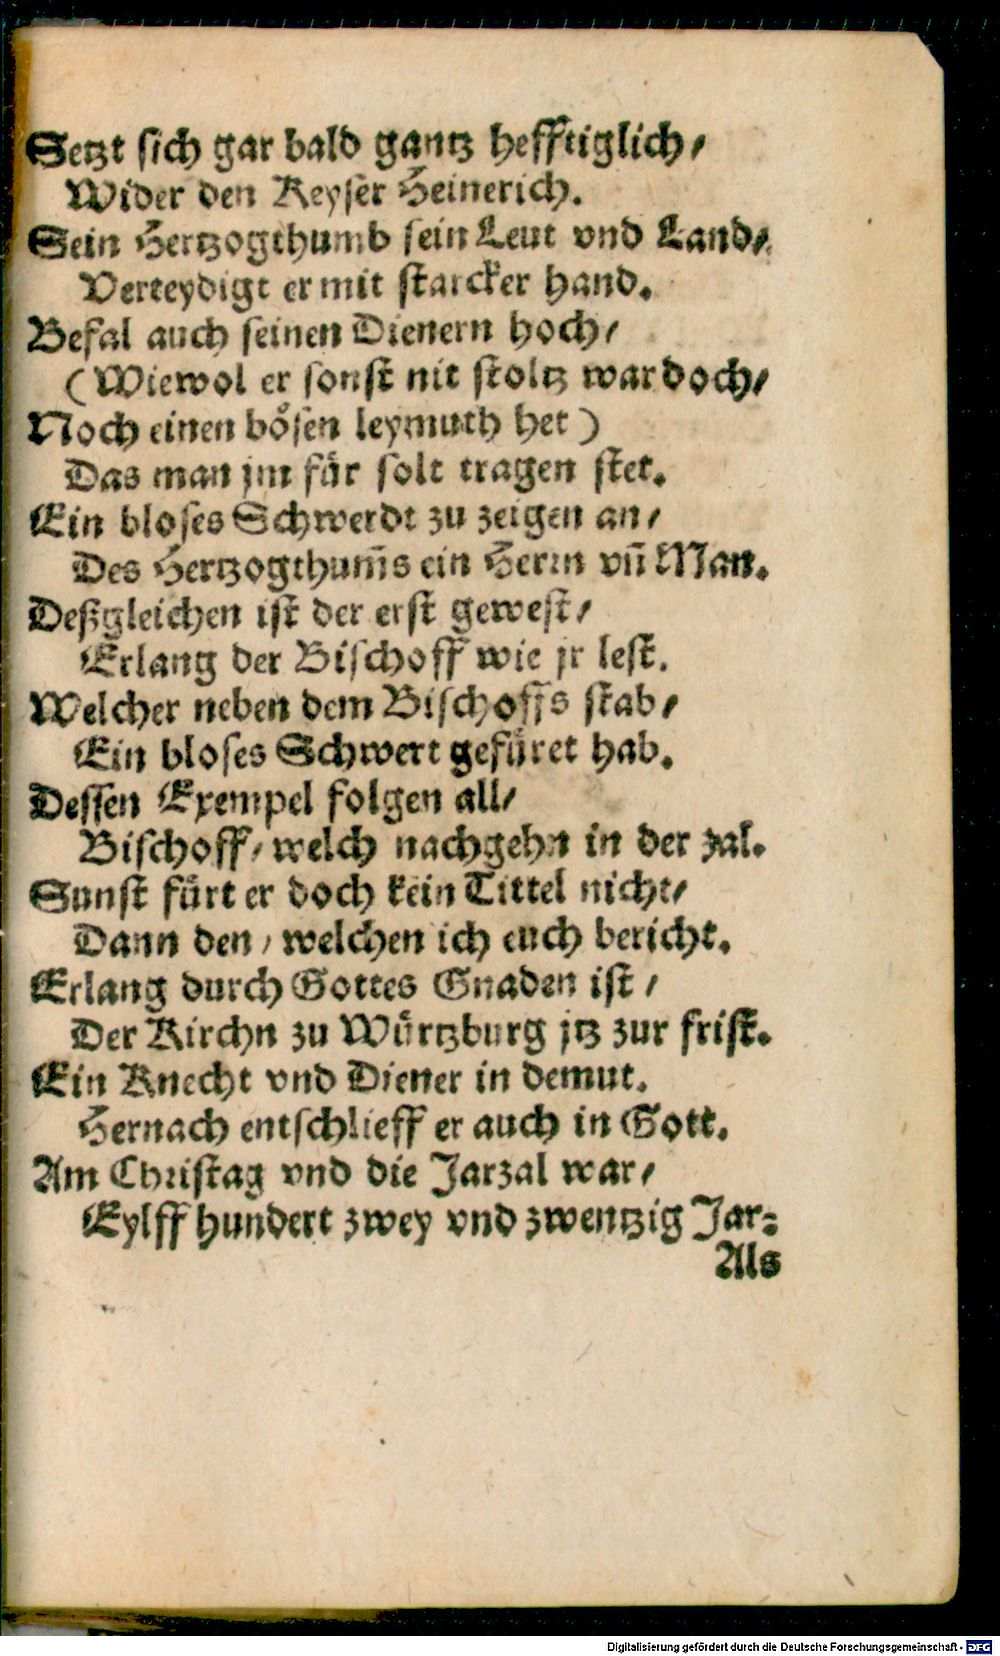 Setzt sich gar bald gantz hefftiglich/
Wider den Keyser Heinerich.
Sein Hertzogthumb sein Leut vnd Land/
Verteydigt er mit starcker hand.
Befal auch seinen Dienern hoch/
(Wiewol er sonst nit stoltz war doch/
Noch einen bösen leymuth het)
Das man jm für solt tragen stet.
Ein bloses Schwerdt zu zeigen an/
Des Hertzogthum̄s ein Herrn vn̄ Man.
Deßgleichen ist der erst gewest/
Erlang der Bischoff wie jr lest.
Welcher neben dem Bischoffs stab/
Ein bloses Schwert gefüret hab.
Dessen Exempel folgen all/
Bischoff/ welch nachgehn in der zal.
Sunst fürt er doch kein Tittel nicht/
Dann den/ welchen ich euch bericht.
Erlang durch Gottes Gnaden ist/
Der Kirchn zu Würtzburg jtz zur frist.
Ein Knecht vnd Diener in demut.
Hernach entschlieff er auch in Gott.
Am Christag vnd die Jarzal war/
Eylff hundert zwey vnd zwentzig Jar:
Als
Digitalisierung gefördert durch die Deutsche Forschungsgemeinschaft - DFG